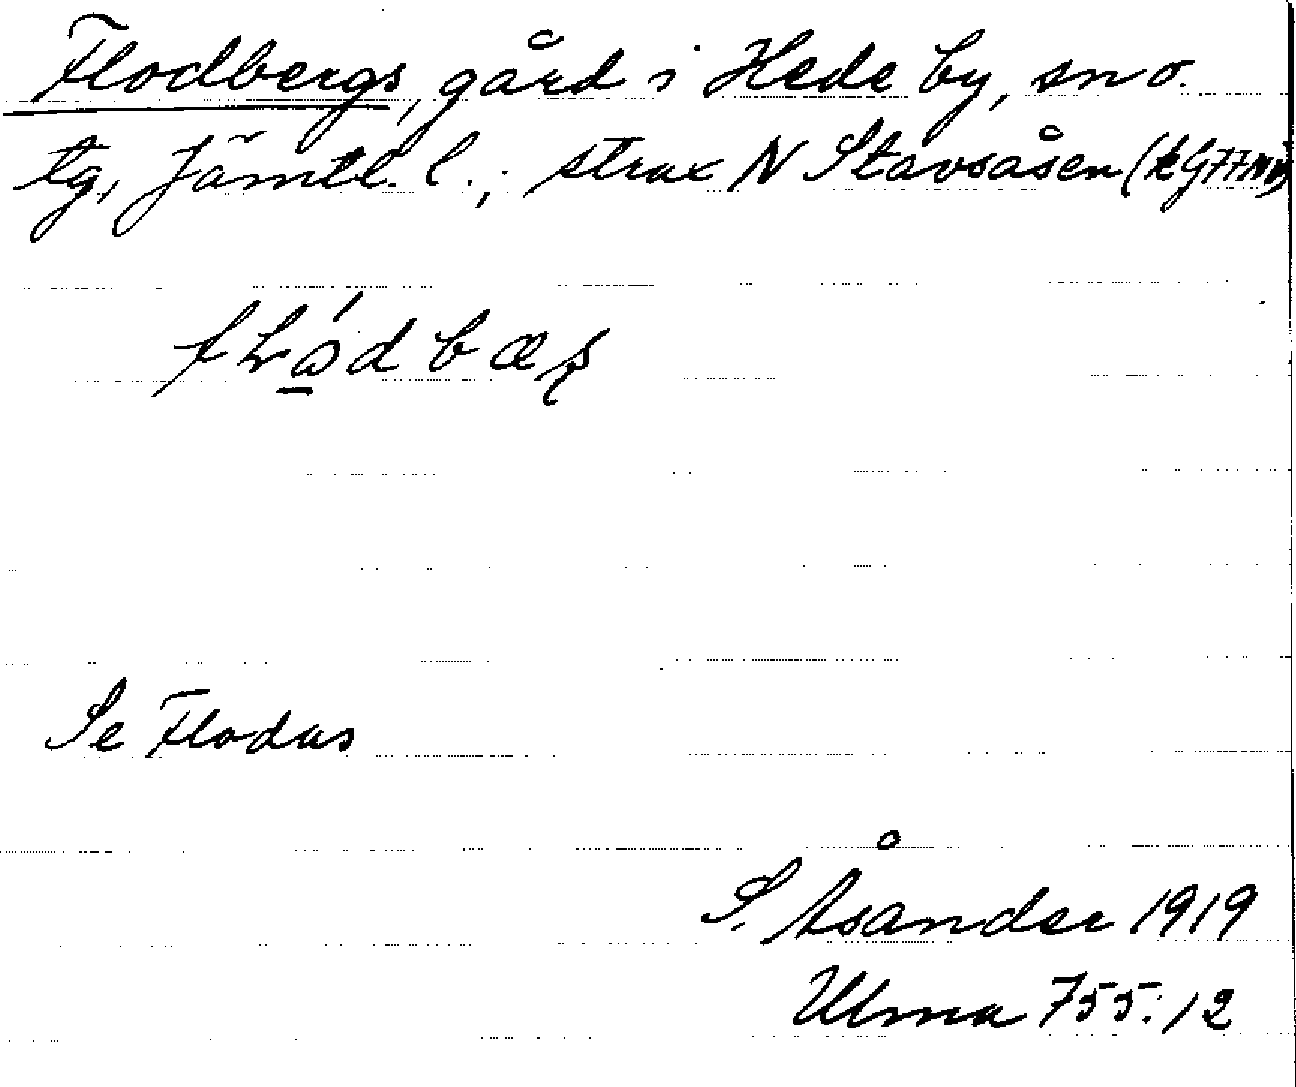 Flodbergs, gård i Hede by, sn o.
tg, Jämtl. l.; strax N Stavsåsen (k G77NV)
Se Flodas
S. Åsander 1919
Ulma 755:12